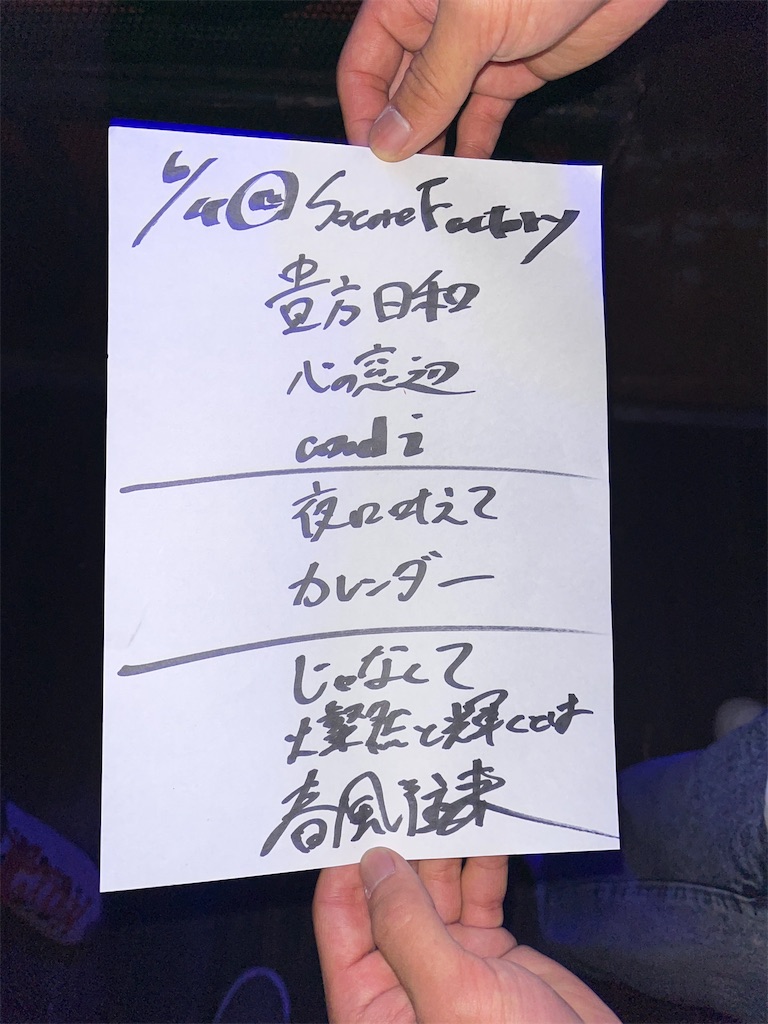 6/4@ SocoreFactory
貴方日和
心の窓辺
cond i
夜に叶えて
カレンダー
じゃなくて
燦然と輝くとは
春風往来